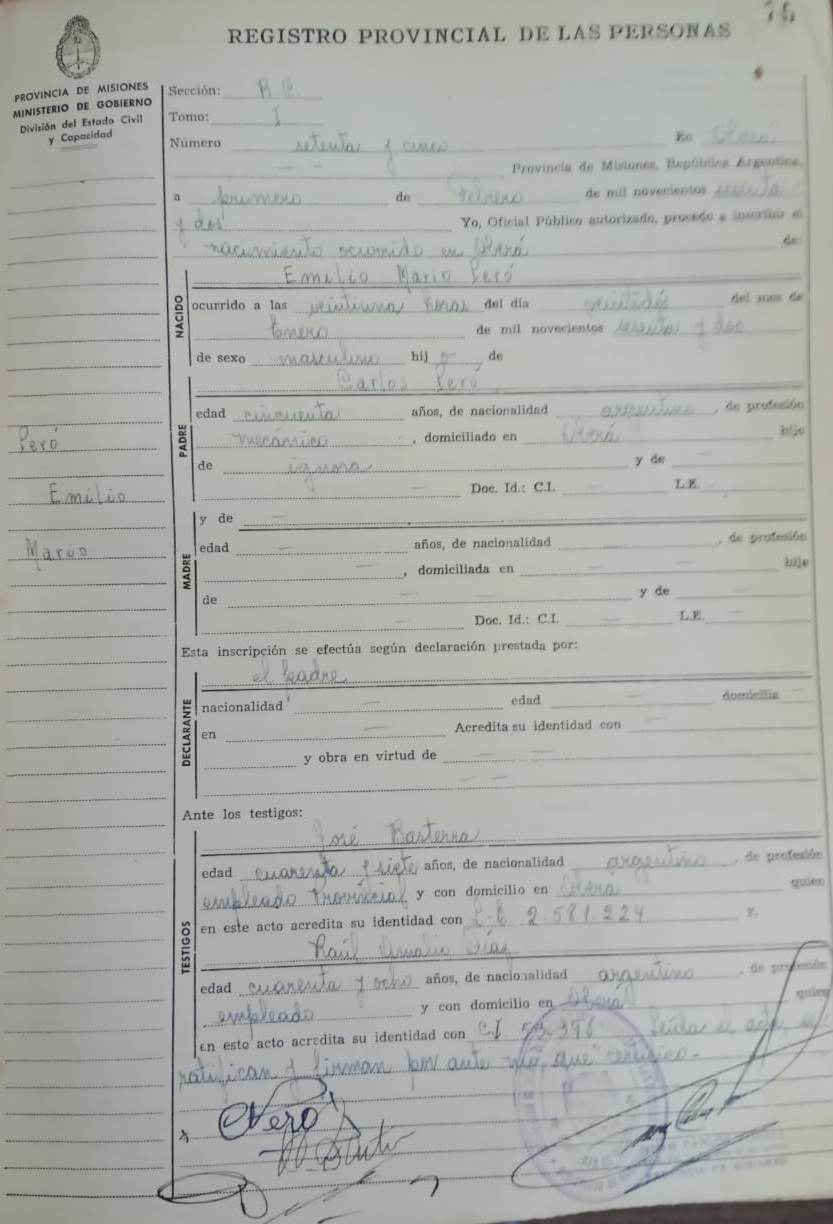 76
REGISTRO PROVINCIAL DE LAS PERSONAS
PROVINCIA DE MISIONES
MINISTERIO DE GOBIERNO
División del Estado Civil
y Capacidad
Sección:
Tomo: I
Número setenta y cinco En Oberá
Provincia de Misiones, República Argentina
a primero de febrero de mil novecientos sesenta
y dos Yo, Oficial Público autorizado, procedo a inscribir el
nacimiento ocurrido en Oberá de:
Emilio Mario Peró
NACIDO
ocurrido a las veintiuna horas del día veintidós del mes de
Enero de mil novecientos sesenta y dos
de sexo masculino hijo de
Carlos Peró
PADRE
edad cincuenta años, de nacionalidad argentino, de profesión
mecánico, domiciliado en Oberá hijo
de ignora y de
Doc. Id.: C.I. L.E.
Peró
Emilio
Mario
y de
MADRE
edad años, de nacionalidad , de profesión
, domiciliada en hija
de y de
Doc. Id.: C.I. L.E.
Esta inscripción se efectúa según declaración prestada por:
el padre
DECLARANTE
nacionalidad edad domicilia
en Acredita su identidad con
y obra en virtud de
Ante los testigos:
José Basterra
TESTIGOS
edad cuarenta y siete años, de nacionalidad argentino, de profesión
empleado Provincial y con domicilio en Oberá quien
en este acto acredita su identidad con 2.581.224 y,
Raúl Amalio Díaz
edad cuarenta y ocho años, de nacionalidad argentino, de profesión
empleado y con domicilio en Oberá quien
en este acto acredita su identidad con C.I. 53.398 Leída el acta, se
ratifican y firman por ante mí, que certifico.-
x CPeró